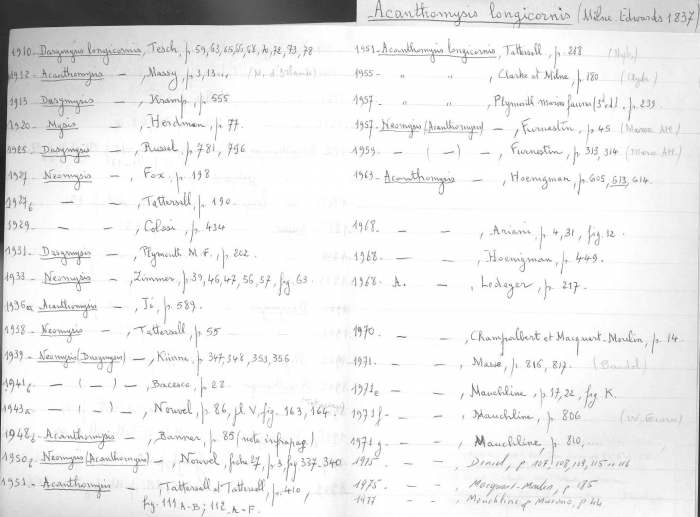 Acanthomysis longicornis (Milne. Edwards 1837)
1910 - Dasymysis longicornis, Tesch, p. 59, 63, 65, 66, 68, 70, 72, 73, 78
1912 - Acanthomysis — , Massy, p. 3, 13... (N. d'Irlande)
1913 - Dasymysis — , Kramp, p. 555
1920 - Mysis — , Herdman, p. 77.
1925 - Dasymysis — , Russel, p. 781, 796
Neomysis — , Fox, p. 198
1927b — — , Tattersall, p. 190
1929 — — , Colosi, p. 434
1931 - Dasymysis — , Plymouth M. F., p. 202.
1933 - Neomysis — , Zimmer, p. 39, 46, 47, 56, 57, fig. 63.
1936a - Acanthomysis — , Ii, p. 589.
1938 - Neomysis — , Tattersall, p. 55
1939 - Neomysis (Dasymysis) — , Künne, p. 347, 348, 353, 356
1941b — ( — ) — , Bacesco, p. 28
1943a — ( — ) — , Nouvel, p. 86, pl. V, fig. 163, 164.
1948 - Acanthomysis — , Banner, p. 85 (note infrapag.)
1950 - Neomysis (Acanthomysis) — , Nouvel, fiche 27, p. 3, fig 337-340.
1951 - Acanthomysis — , Tattersall et Tattersall, p. 410,
fig. 111 A-B; 112 A-F.
1951 - Acanthomysis longicornis, Tattersall, p. 218
1955 - " " , Clarke et Milne, p. 180 (Clyde)
1957 - " " , Plymouth marine fauna (3e éd), p. 239.
1957 - Neomysis (Acanthomysis) — , Furnestin, p. 45 (Maroc Atl.)
1959 - — ( — ) — , Furnestin, p. 313, 314 (Maroc Atl.)
1963 - Acanthomysis — , Hoenigman, p. 605, 613, 614.
1968 - — — , Ariani, p. 4, 31, fig. 12.
1968 - — — , Hoenigman, p. 449.
1968 - A. — , Ledoyer, p. 217.
1970 — — , Champalbert et Macquart-Moulin, p. 14.
1971 — — , Massé, p. 816, 817. (Bandol)
1971e — — , Mauchline, p. 17, 22, fig. K.
1971f — — , Mauchline, p. 806
1971g — — , Mauchline, p. 810, ...
1975 — — , Deniel, p. 107, 108, 109, 115 116
1975 — — , Macquart-Moulin, p. 185
1977 — — , Mauchline & Murano, p. 44